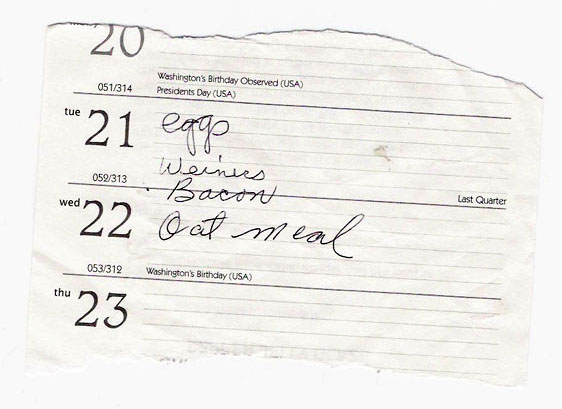 20
Washington's Birthday Observed (USA)
051/314 Presidents Day (USA)
tue 21 eggs
Weiners
052/313
Bacon
Last Quarter
wed 22 Oat meal
053/312 Washington's Birthday (USA)
thu 23